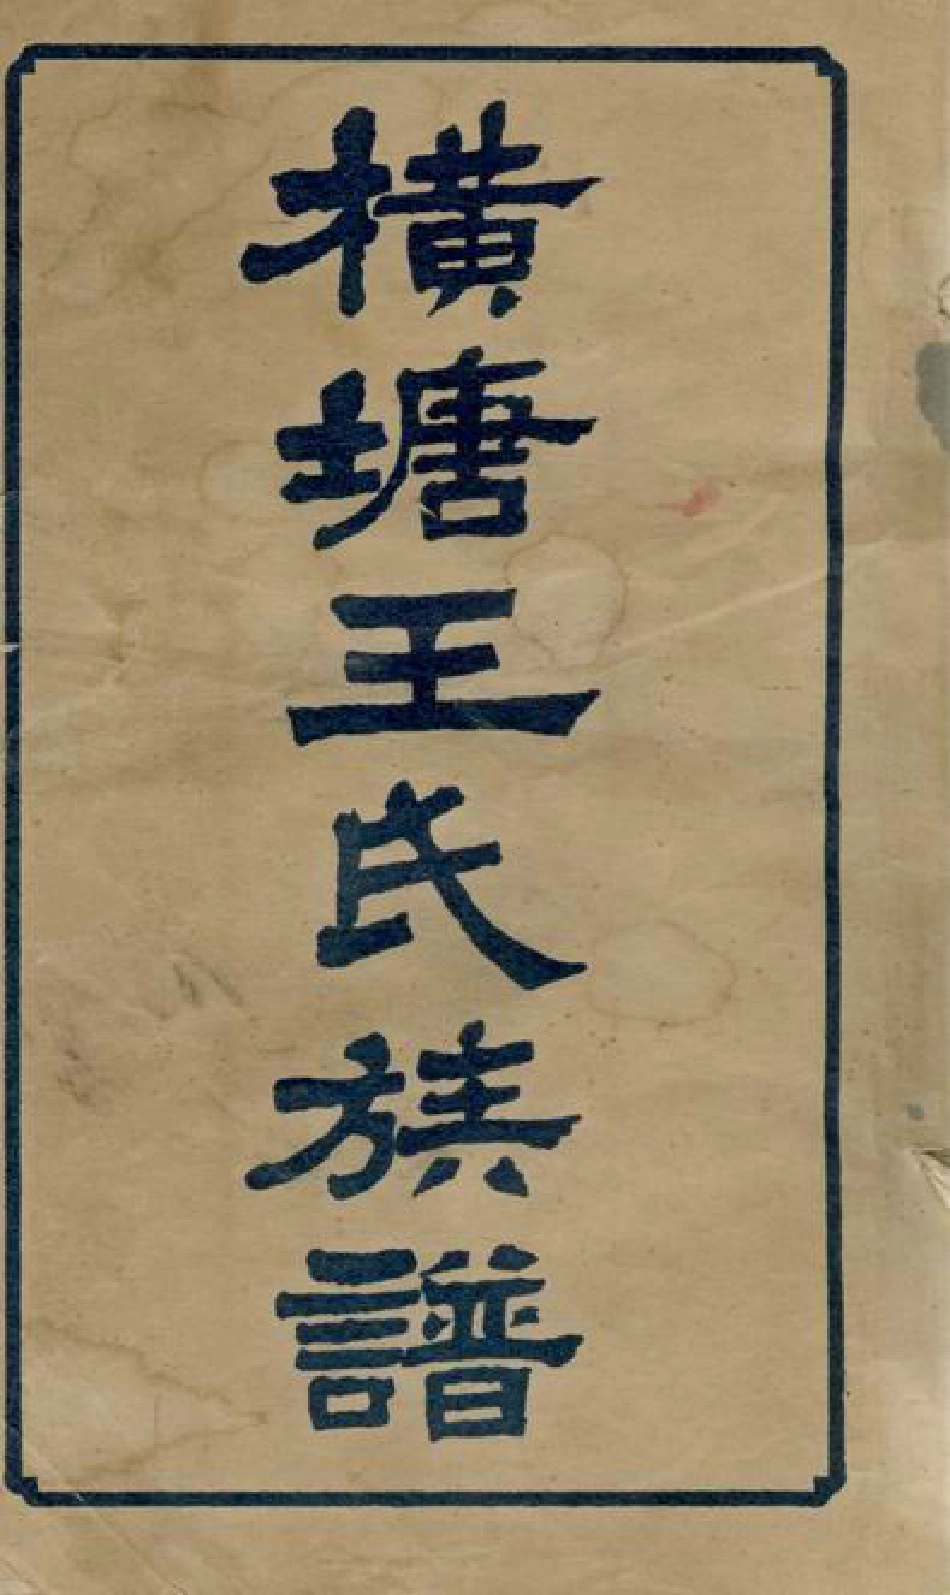 橫塘王氏族譜